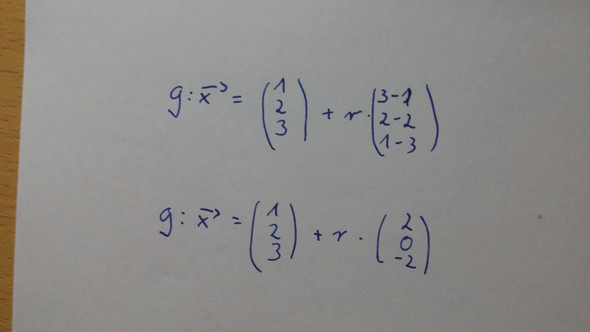 g: x⃗ = (1 2 3) + r · (3-1 2-2 1-3)
g: x⃗ = (1 2 3) + r · (2 0 -2)